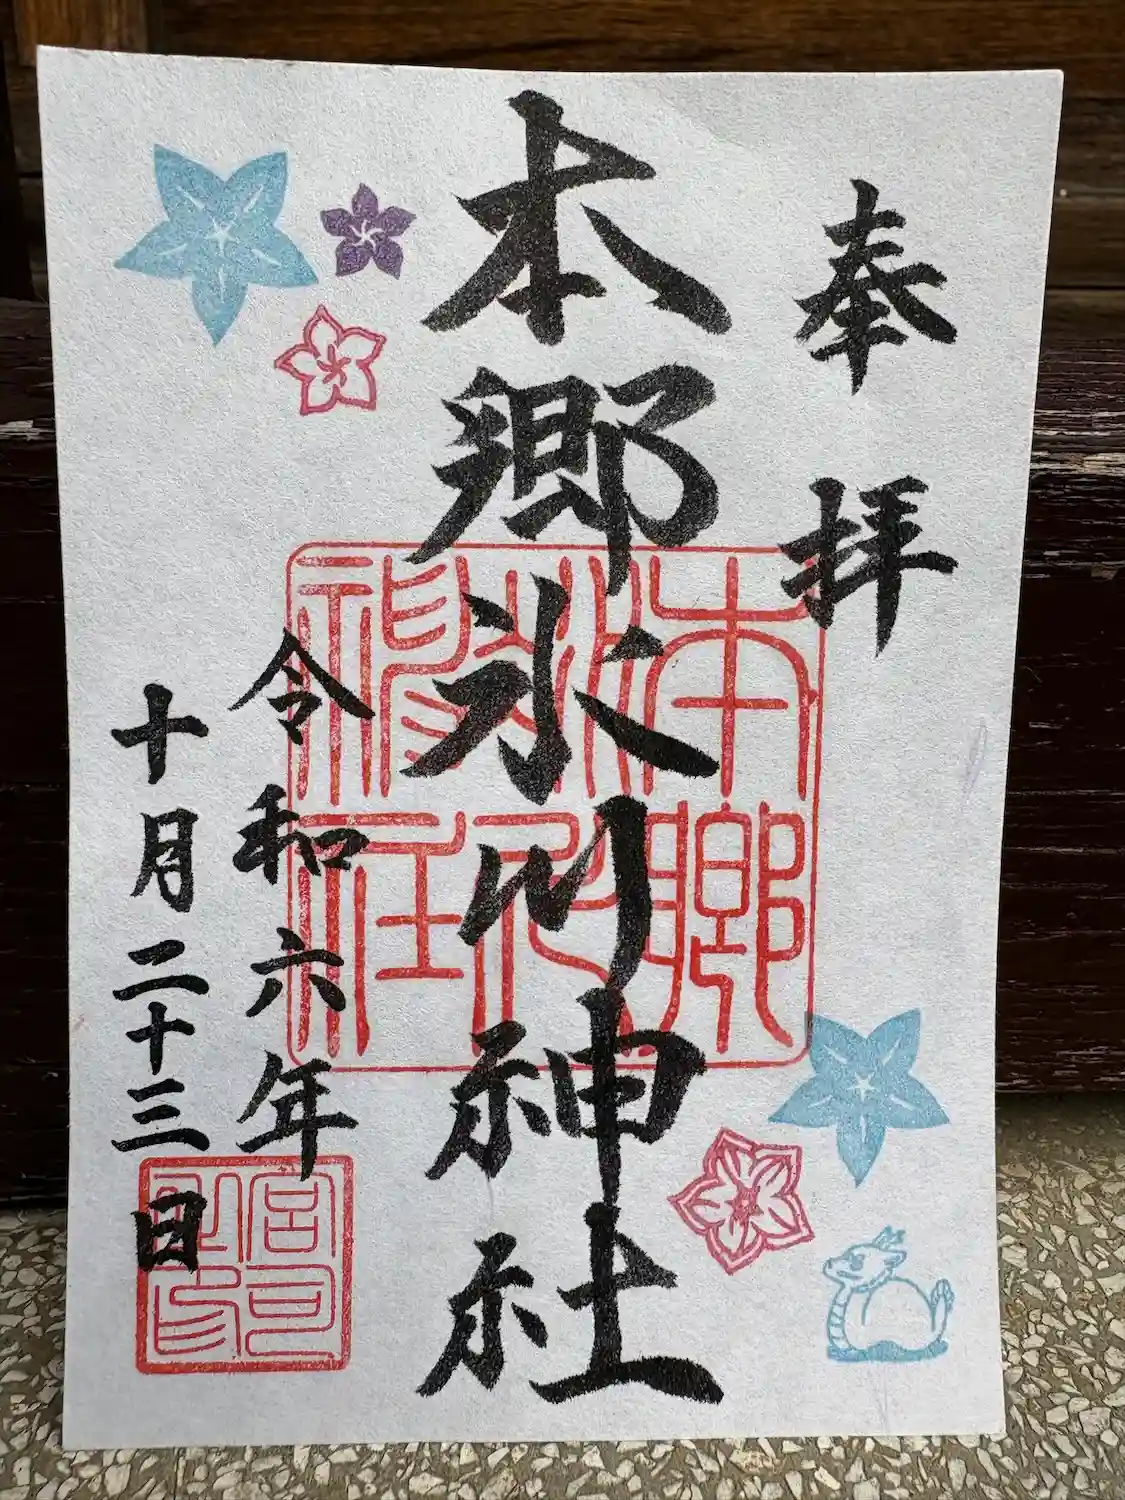 奉拝
本郷氷川神社
令和六年
十月二十三日
本郷
氷川
神社